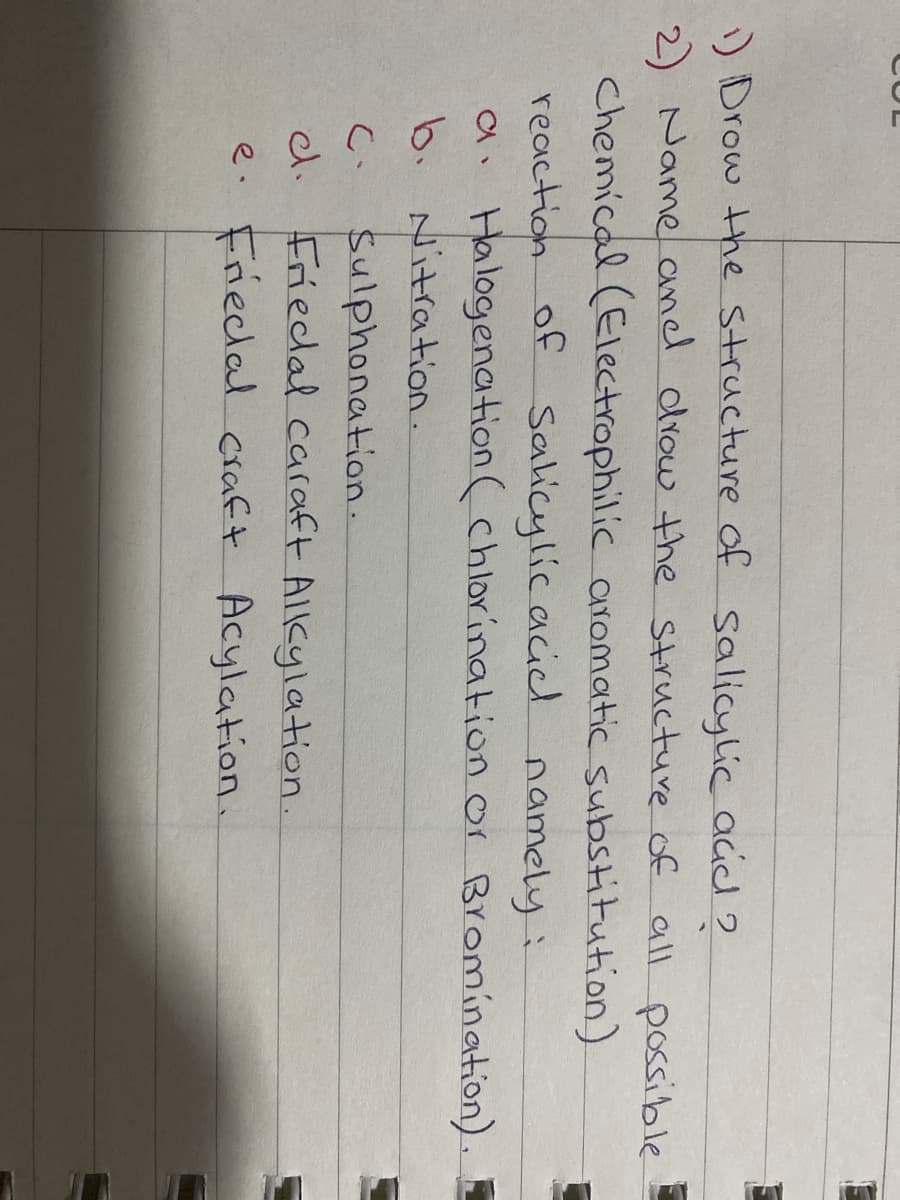 1) Drow the structure of salicylic acid?
2) Name and drow the structure of all possible
chemical (Electrophilic aromatic substitution)
reaction of Salicylic acid namely:
a. Halogenation (chlorination or Bromination).
b. Nitration.
c. Sulphonation.
d. Friedal caraft Alkylation.
e. Friedal craft Acylation.